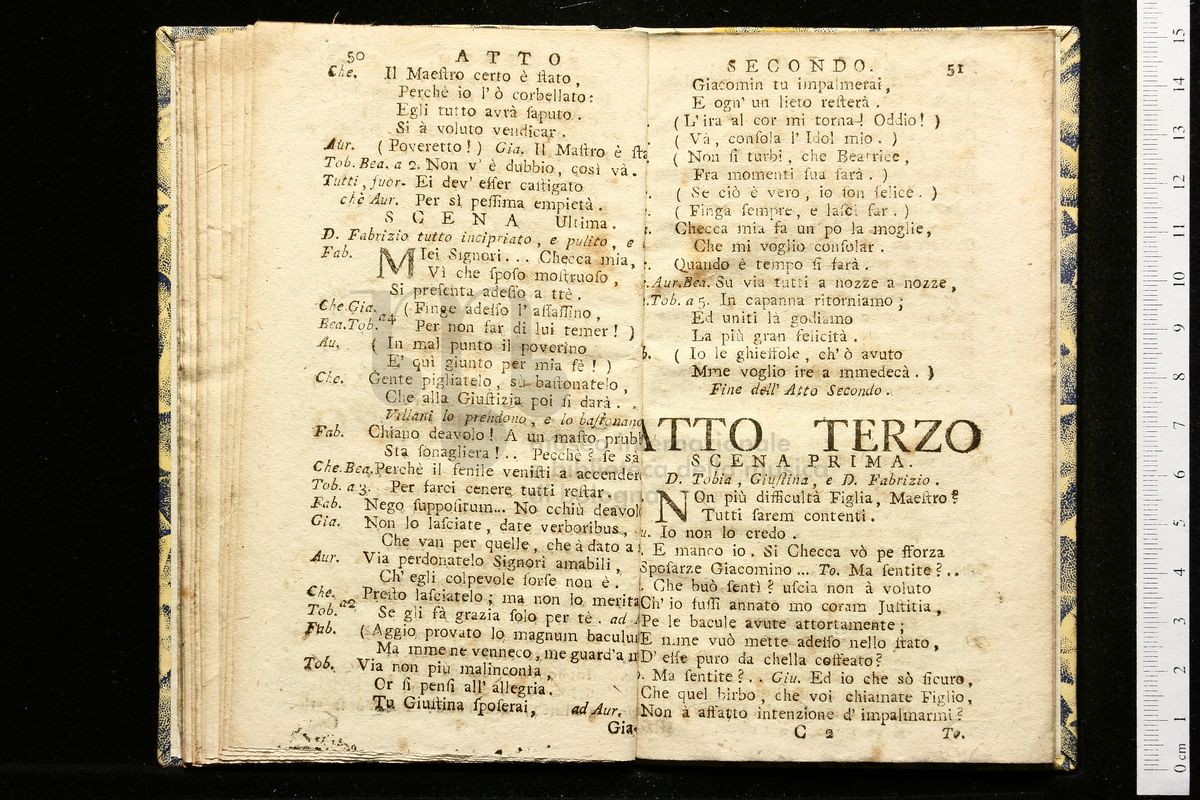 50 ATTO
Che. Il Maeſtro certo è ſtato,
Perchè io l' ò corbellato:
Egli tutto avrà ſaputo.
Si à voluto vendicar.
Aur. (Poveretto!) Gia. Il Maſtro è ſta
Tob. Bea. a 2. Non v' è dubbio, così và.
Tutti, fuor- Ei dev' eſſer caſtigato
chè Aur. Per sì peſſima empietà.
SCENA Ultima.
D. Fabrizio tutto incipriato, e pulito, e
Fab. MIei Signori... Checca mia,
Vi che ſpoſo moſtruoſo,
Si preſenta adeſſo a trè.
Che. Gia. a4 (Finge adeſſo l' aſſaſſino,
Bea. Tob. Per non far di lui temer!)
Au. (In mal punto il poverino
E' qui giunto per mia fè!)
Che. Gente pigliatelo, su baſtonatelo,
Che alla Giuſtizia poi ſi darà.
Villani lo prendono, e lo baſtonano
Fab. Chiano deavolo! A un maſto prubb
Sta ſonagliera!.. Pecchè? ſe sà
Che. Bea. Perchè il fenile veniſti a accendere
Tob. a 3. Per farci cenere tutti reſtar.
Fab. Nego ſuppoſitum... No cchiù deavol
Gia. Non lo laſciate, date verboribus,
Che van per quelle, che à dato a
Aur. Via perdonatelo Signori amabili,
Ch' egli colpevole forſe non è.
Che. a2 Preſto laſciatelo; ma non lo merita
Tob. Se gli fà grazia ſolo per tè. ad
Fab. (Aggio provato lo magnum bacului
Ma mme ne venneco, me guard'a m
Tob. Via non più malinconia,
Or ſi penſi all' allegria.
Tu Giuſtina ſpoſerai, ad Aur.
Gia-
SECONDO. 51
Giacomin tu impalmerai,
E ogn' un lieto reſterà.
(L' ira al cor mi torna! Oddio!)
(Và conſola l' Idol mio.)
(Non ſi turbi, che Beatrice,
Fra momenti ſua ſarà.)
(Se ciò è vero, io ſon felice.)
(Finga ſempre, e laſci far.)
Checca mia fa un po la moglie,
Che mi voglio conſolar.
Quando è tempo ſi farà.
.Aur. Bea. Su via tutti a nozze a nozze,
.Tob. a 5. In capanna ritorniamo;
Ed uniti là godiamo
La più gran felicità.
b. (Io le ghieſſole, ch' ò avuto
Mme voglio ire a mmedecà.)
Fine dell' Atto Secondo.
ATTO TERZO
SCENA PRIMA.
D. Tobia, Giuſtina, e D. Fabrizio.
NOn più difficultà Figlia, Maeſtro?
Tutti ſarem contenti.
u. Io non lo credo.
E manco io. Si Checca vò pe fforza
Spoſarze Giacomino... To. Ma ſentite?..
Che buò ſenti? uſcia non à voluto
Ch' io fuſſi annato mo coram Juſtitia,
Pe le bacule avute attortamente;
E mme vuò mette adeſſo nello ſtato,
D' eſſe puro da chella coffeato?
Ma ſentite?.. Giu. Ed io che sò ſicuro,
Che quel birbo, che voi chiamate Figlio,
Non à affatto intenzione d' impalmarmi?
C 2 To.